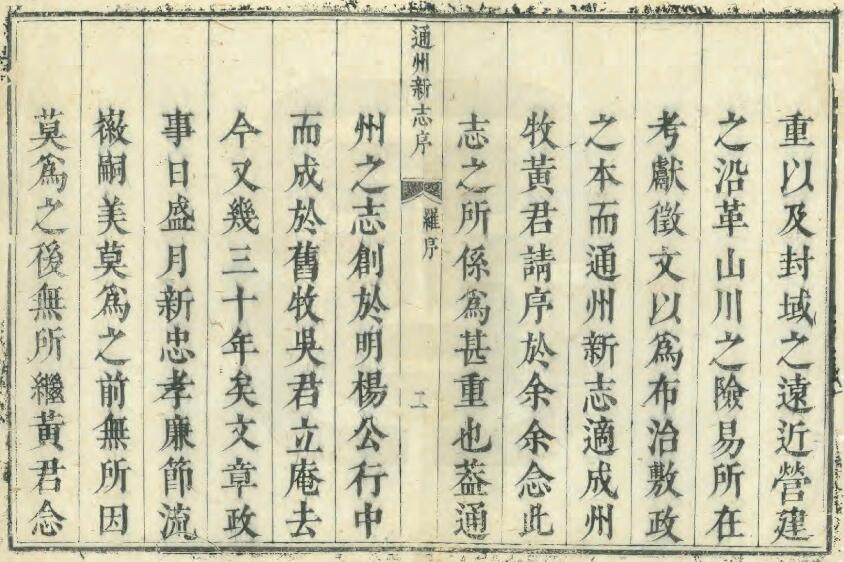 重以及封域之遠近營建
之沿革山川之險易所在
考獻徵文以爲布治敷政
之本而通州新志適成州
牧黃君請序於余余念此
志之所係爲甚重也葢通
通州新志序
羅序
二
州之志創於明楊公行中
而成於舊牧吳君立庵去
今又幾三十年矣文章政
事日盛月新忠孝廉節流
徽嗣美莫爲之前無所因
莫爲之後無所繼黃君念